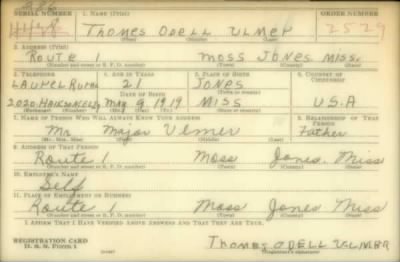 SERIAL NUMBER 1. NAME (Print) ORDER NUMBER
THOMES ODELL ULMER 2529
(First) (Middle) (Last)
2. ADDRESS (Print)
ROUTE 1 MOSS JONES MISS.
(Number and street or R. F. D. number) (Town) (County) (State)
3. TELEPHONE 4. AGE IN YEARS 5. PLACE OF BIRTH 6. COUNTRY OF CITIZENSHIP
LAUREL RURAL 21 JONES
DATE OF BIRTH
MAY 9 1919 MISS U.S.A
(Exchange) (Number) (Mo.) (Day) (Yr.) (State or country)
7. NAME OF PERSON WHO WILL ALWAYS KNOW YOUR ADDRESS 8. RELATIONSHIP OF THAT PERSON
Mr. Major Ulmer Father
(Mr., Mrs., Miss) (First) (Middle) (Last)
9. ADDRESS OF THAT PERSON
Route 1 Moss Jones Miss
(Number and street or R. F. D. number) (Town) (County) (State)
10. EMPLOYER'S NAME
Self
11. PLACE OF EMPLOYMENT OR BUSINESS
Route 1 Moss Jones Miss
(Number and street or R. F. D. number) (Town) (County) (State)
I AFFIRM THAT I HAVE VERIFIED ABOVE ANSWERS AND THAT THEY ARE TRUE.
REGISTRATION CARD
D. S. S. Form 1 THOMES ODELL ULMER
(Registrant's signature)